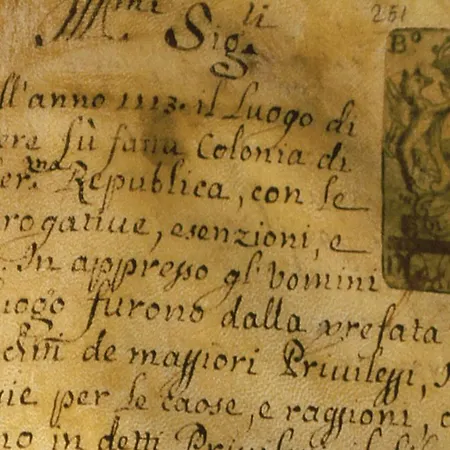 Ill.mi Sig.li
251
ll'anno 1113. il Luogo di
ere fù fatta Colonia di
er.ma Republica, con le
rogatiue, esenzioni, e
In appresso gl'Vomini
uogo furono dalla prefata
de maggiori Priuileggi,
ie per le cause, e raggioni,
no in detti